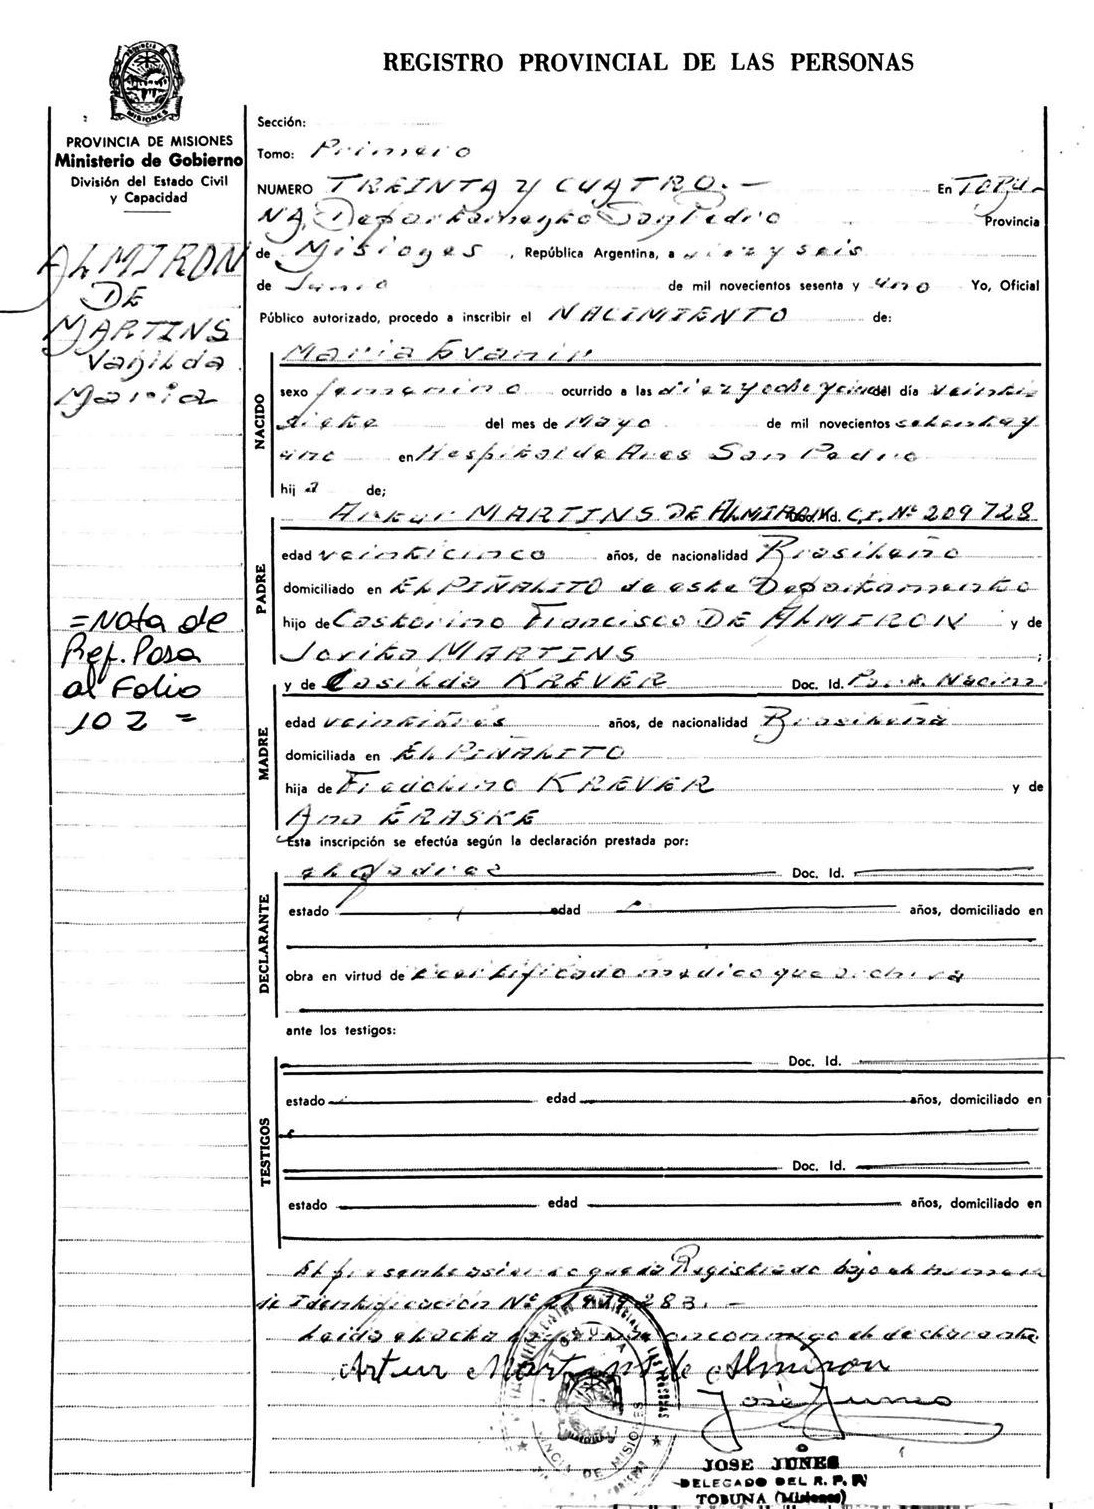 REGISTRO PROVINCIAL DE LAS PERSONAS
MISIONES
PROVINCIA DE MISIONES
Ministerio de Gobierno
División del Estado Civil
y Capacidad
ALMIRON
DE
MARTINS
Vanilda
Maria
=Nota de
Ref. Pasa
al Folio
102=
Sección:
Tomo: Primero
NUMERO TREINTA Y CUATRO.- En TOBU-
NA, Departamento San Pedro Provincia
de Misiones, República Argentina, a dieryseis
de Junio de mil novecientos sesenta y uno Yo, Oficial
Público autorizado, procedo a inscribir el NACIMIENTO de:
NACIDO
Maria
sexo femenino ocurrido a las del día veinti
siete del mes de Mayo de mil novecientos setenta y
uno en Hospital de Area San Pedro
hija de;
PADRE
MARTINS DE ALMIRON Doc. Id. C.I. Nº 209728
edad veinticinco años, de nacionalidad Brasileño
domiciliado en EL PIÑALITO de este Departamento
hijo de Castorino Francisco DE ALMIRON y de
MARTINS ;
MADRE
y de Casilda KREVER Doc. Id.
edad veintitres años, de nacionalidad Brasileña
domiciliada en EL PIÑALITO
hija de KREVER y de
Ana ERASKE
Esta inscripción se efectúa según la declaración prestada por:
DECLARANTE
el padre Doc. Id.
estado edad años, domiciliado en
obra en virtud de certificado medico que archiva
ante los testigos:
TESTIGOS
Doc. Id.
estado edad años, domiciliado en
Doc. Id.
estado edad años, domiciliado en
El presente asiento queda Registrado bajo el numero
de Identificación Nº
Leida el acta conmigo el declarante
Artur Martins de Almiron
José Junes
JOSE JUNES
DELEGADO DEL R. P. P.
TOBUNA (Misiones)